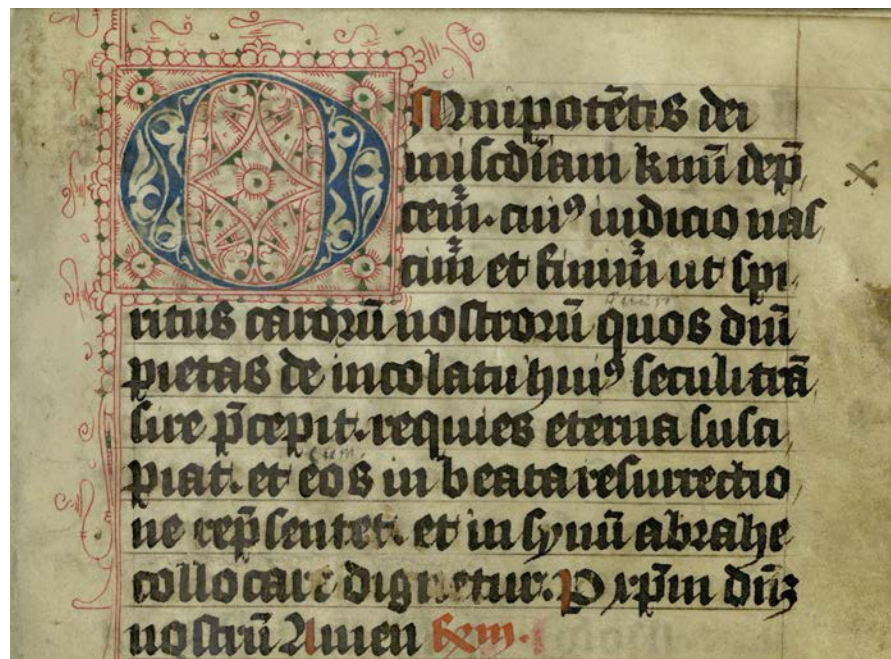 OMnipotētis dei
miscdīam kmī dep̄
cem̄. cuiꝰ iudicio nas
cim̄ et finim̄ ut spi
ritus carorū nostrorū quos dn̄i
pietas de incolatu huiꝰ seculi trā
sire p̄cepit. requies eterna susci
piat. et eos in beata resurrectio
ne rep̄sentet. et in synū abrahe
collocare dignetur. P xp̄m dn̄ꝫ
nostrū Amen